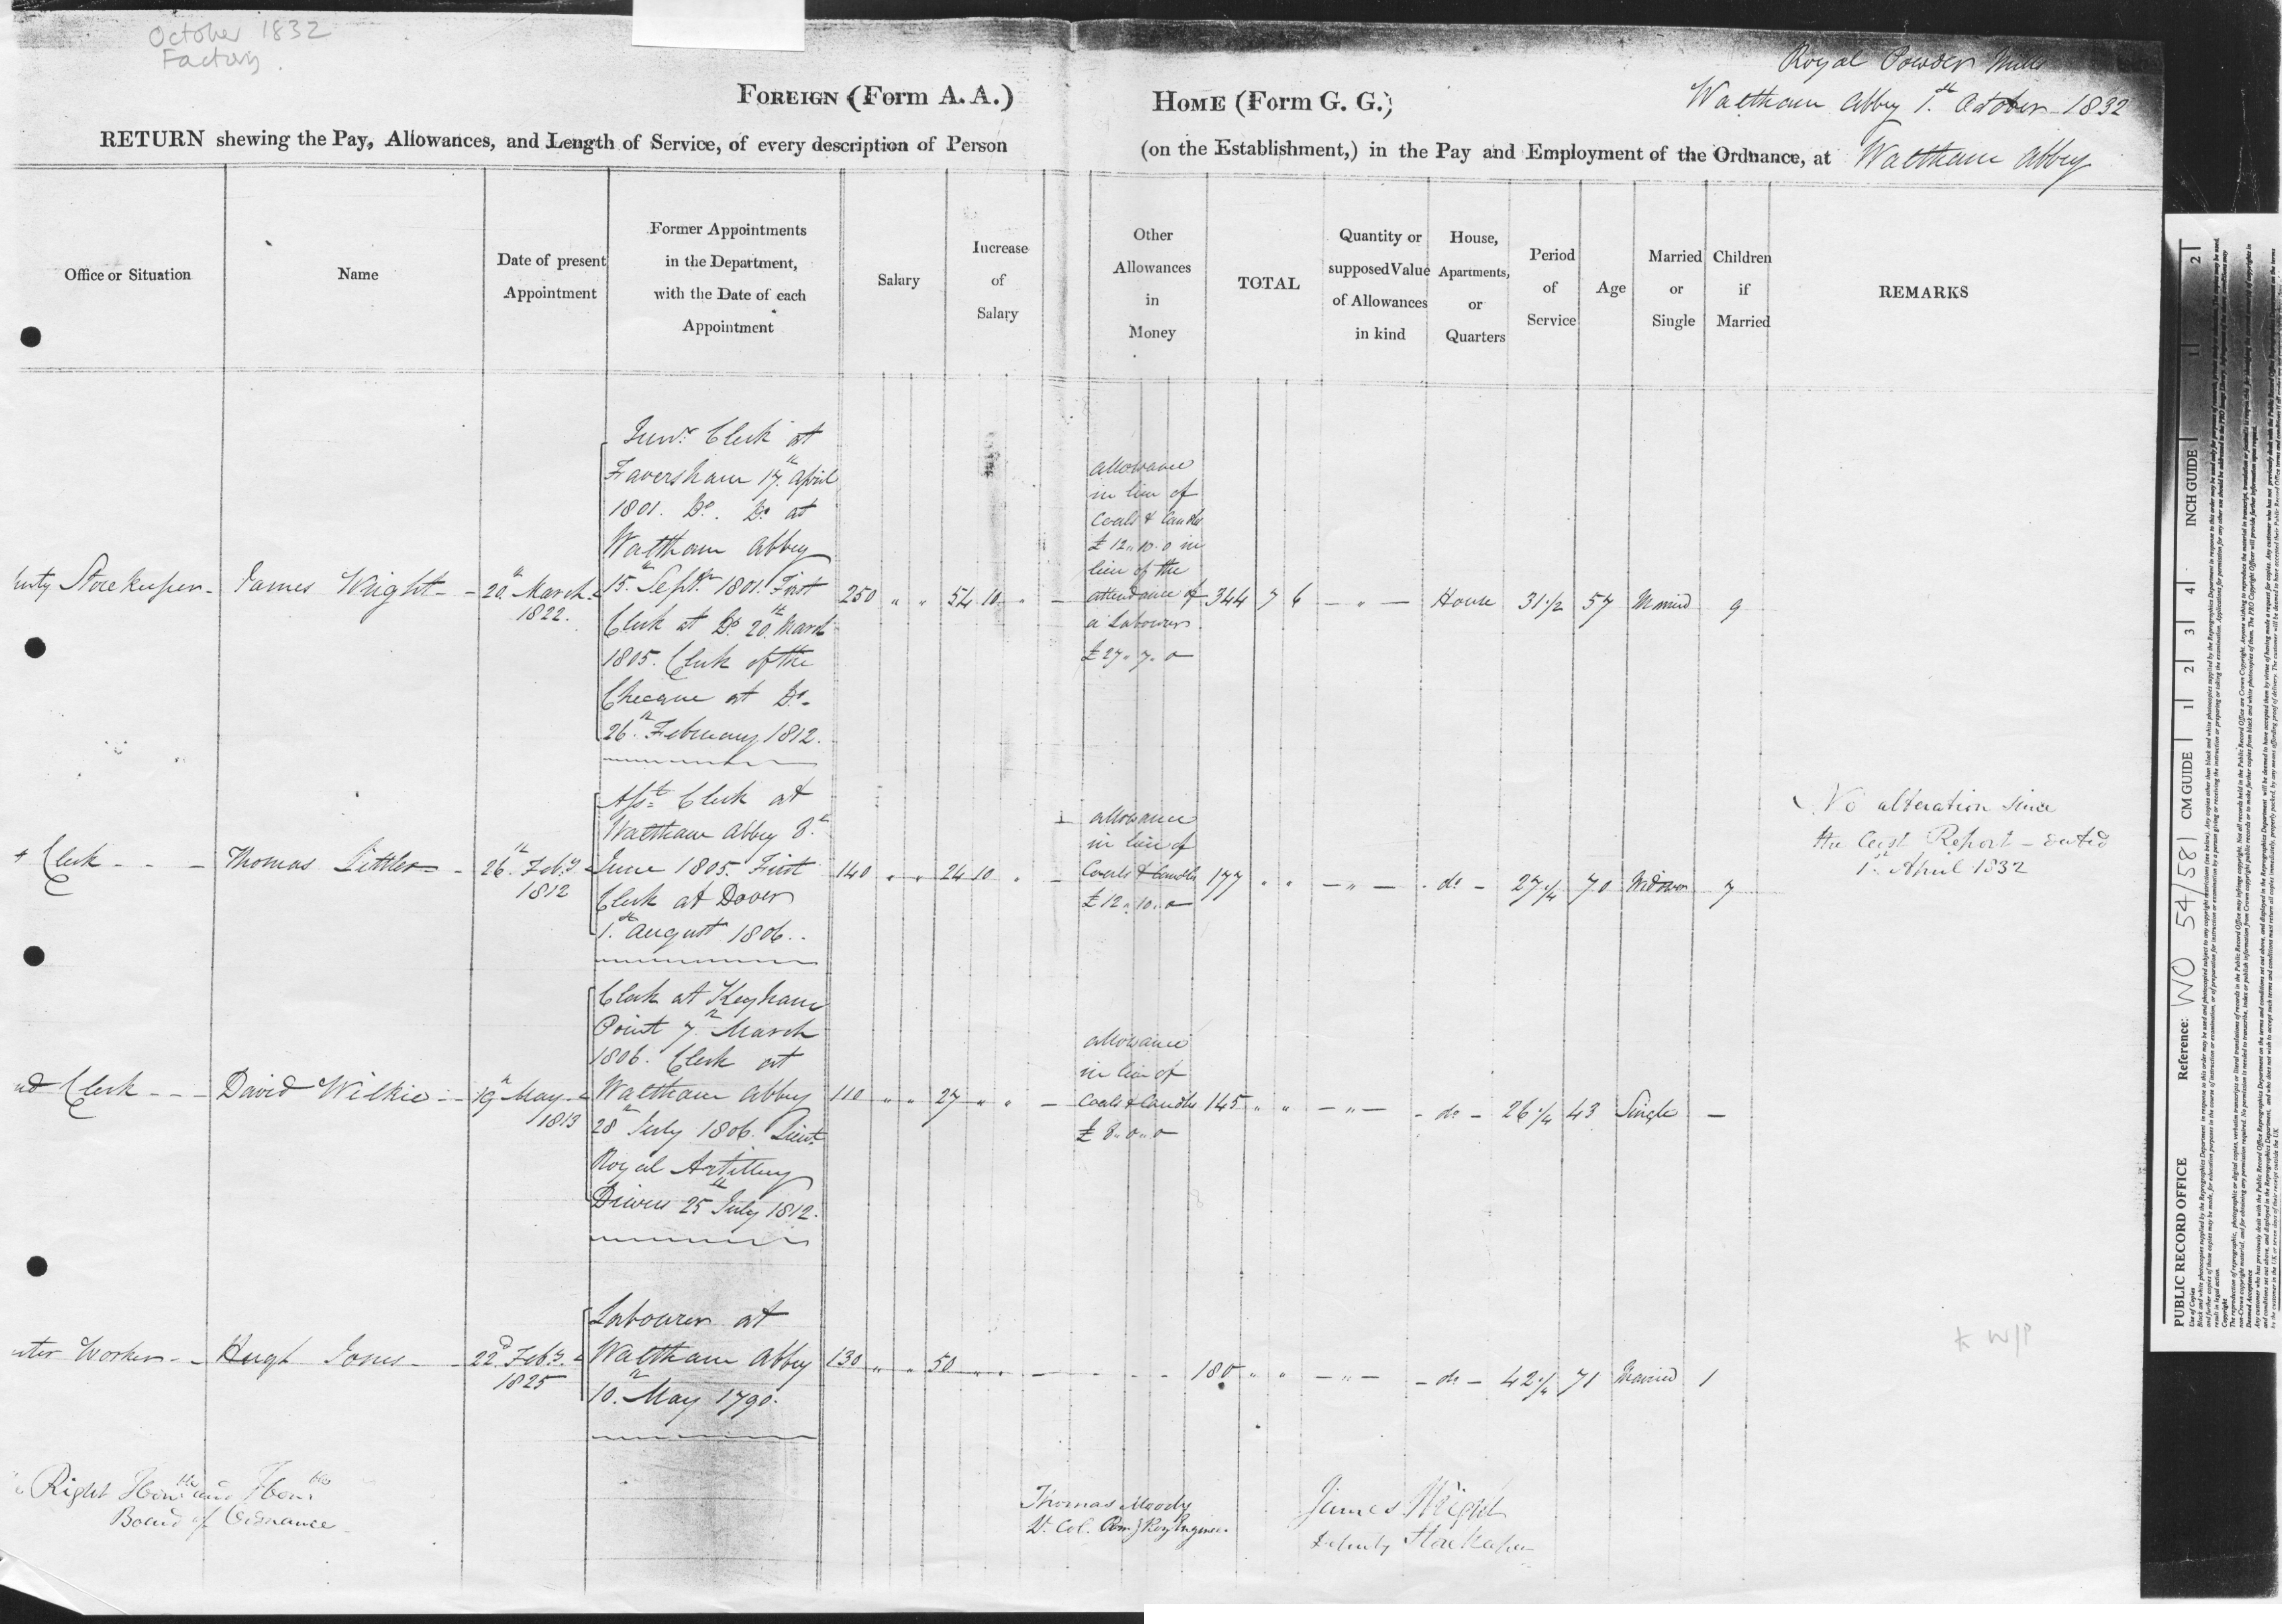 October 1832
Factory.
Royal Powder Mills
Waltham Abbey 1st October 1832
FOREIGN (Form A. A.)
HOME (Form G. G.)
RETURN shewing the Pay, Allowances, and Length of Service, of every description of Person
(on the Establishment,) in the Pay and Employment of the Ordnance, at Waltham Abbey
Office or Situation
Name
Date of present
Appointment
Former Appointments
in the Department,
with the Date of each
Appointment
Salary
Increase
of
Salary
Other
Allowances
in
Money
TOTAL
Quantity or
supposed Value
of Allowances
in kind
House,
Apartments,
or
Quarters
Period
of
Service
Age
Married
or
Single
Children
if
Married
REMARKS
Storekeeper -
James Wright -
20th March
1822.
Junr. Clerk at
Faversham 17th April
1801. Do. Do. at
Waltham Abbey
15th Septr. 1801. First
Clerk at Do. 20th March
1805. Clerk of the
Cheque at Do.
26th February 1812.
250 " "
54 10 "
allowance
in lieu of
Coals & Candles
£12"10"0 in
lieu of the
attendance of
a Labourer
£27"7"0
344 7 6
- " -
House
31 1/2
57
Married
9
Clerk - - -
Thomas Littler
26th Feby.
1812
Asst. Clerk at
Waltham Abbey 8th
June 1805. First
Clerk at Dover
1st August 1806.
140 " "
24 10 "
allowance
in lieu of
Coals & Candles
£12"10"0
177 " "
- " -
- do -
27 1/4
70
Widower
7
No alteration since
the last Report - dated
1st April 1832
Clerk - - -
David Wilkie
19th May
1813
Clerk at Keyham
Point 7th March
1806. Clerk at
Waltham Abbey
28th July 1806. Lieut.
Royal Artillery
Drivers 25th July 1812.
110 " "
27 " "
allowance
in lieu of
Coals & Candles
£8"0"0
145 " "
- " -
- do -
26 1/4
43
Single
-
Worker - -
Hugh Jones -
22d Feby.
1825
Labourer at
Waltham Abbey
10th May 1790.
130 " "
50 " "
180 " "
- " -
- do -
42 1/4
71
Married
1
* W/P
Right Honble and Honble
Board of Ordnance
Thomas Moody
Lt. Col. Comg Roy Engineer
James Wright
Deputy Storekeeper
INCH GUIDE
CM GUIDE
PUBLIC RECORD OFFICE
Reference:
WO 54/581